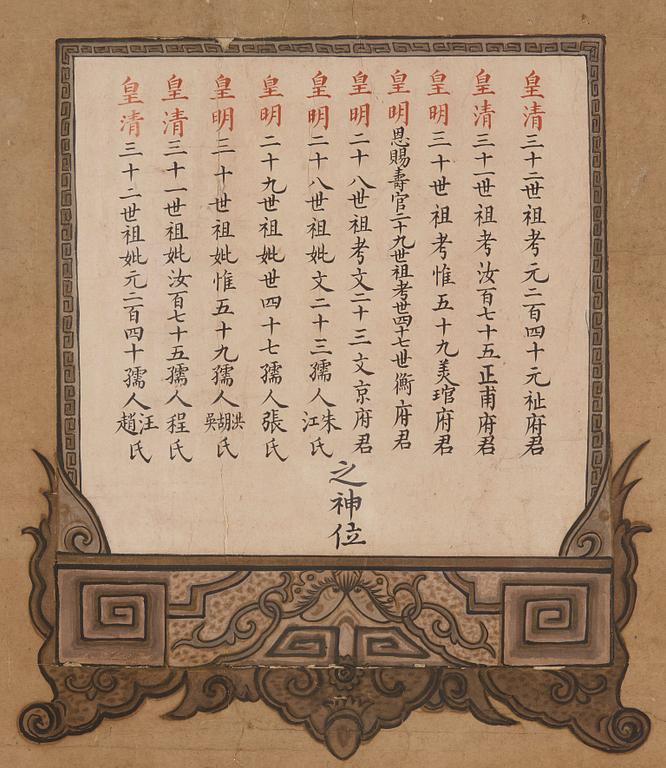 皇清三十二世祖考元二百四十元祉府君
皇清三十一世祖考汝百七十五正甫府君
皇明三十世祖考惟五十九美琯府君
皇明恩賜壽官二十九世祖考世四十七世衡府君
皇明二十八世祖考文二十三文京府君
皇明二十八世祖妣文二十三孺人朱江氏
皇明二十九世祖妣世四十七孺人張氏
皇明三十世祖妣惟五十九孺人洪胡吳氏
皇清三十一世祖妣汝百七十五孺人程氏
皇清三十二世祖妣元二百四十孺人汪趙氏
之神位